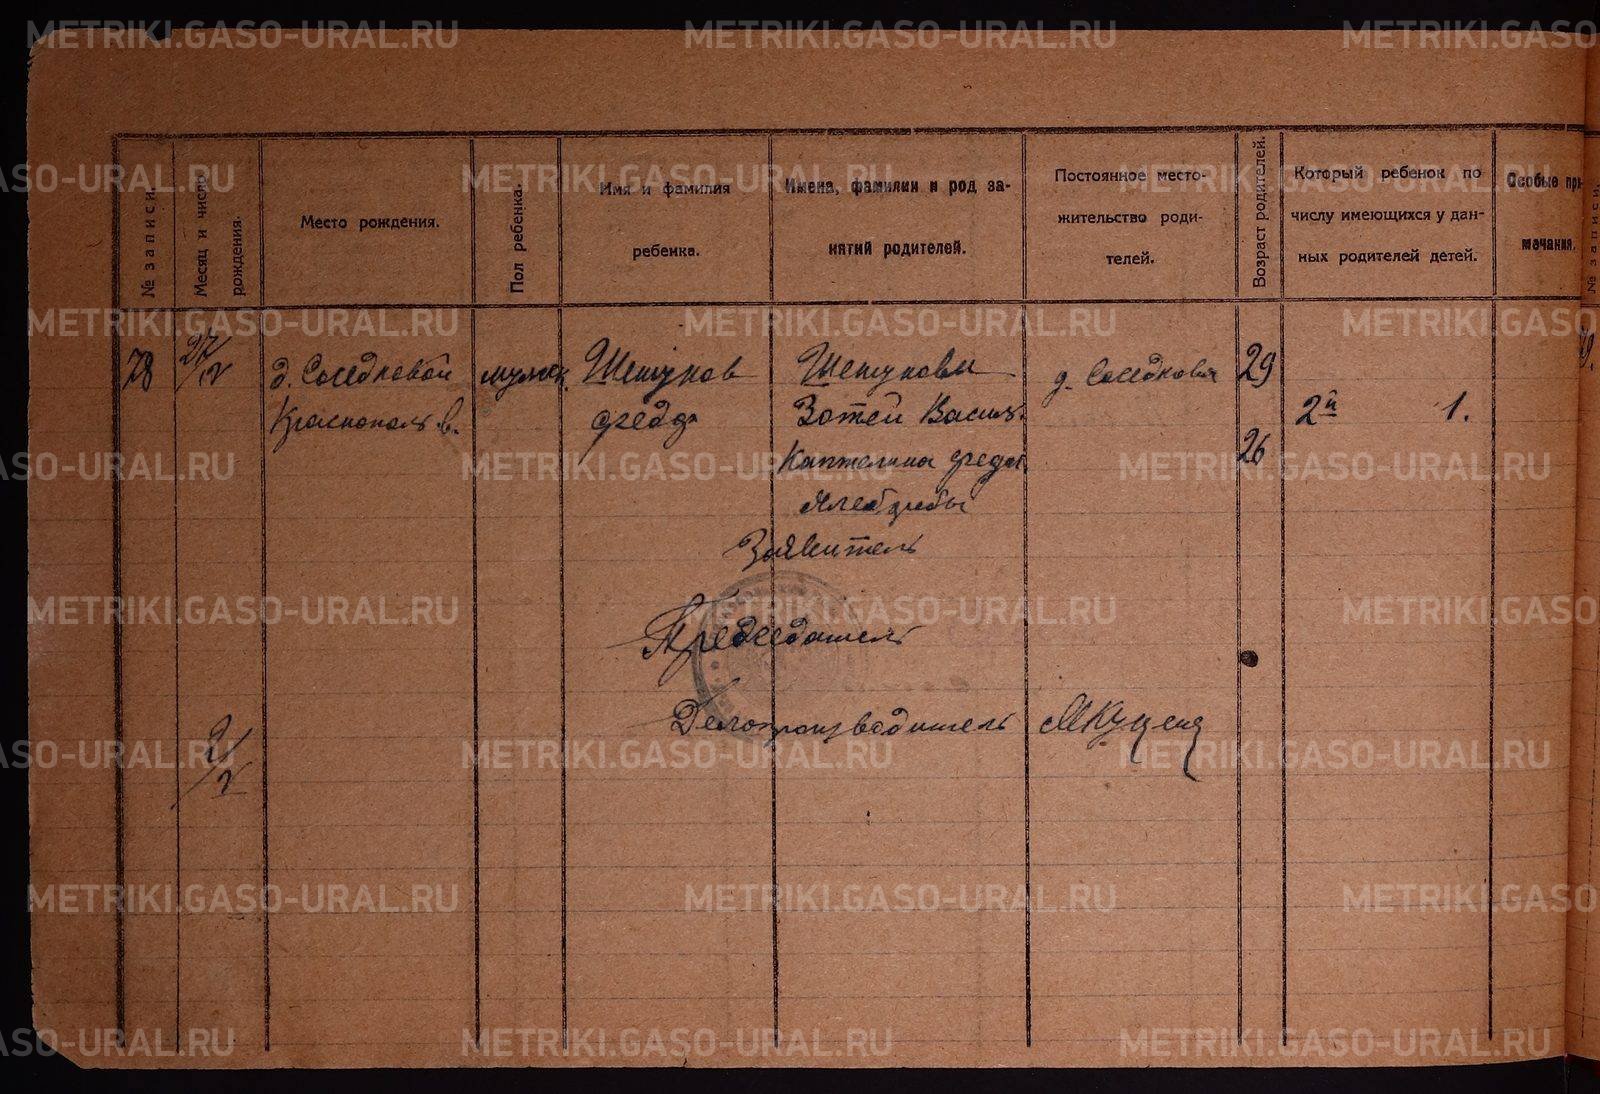 № записи.
Месяц и число рождения.
Место рождения.
Пол ребенка.
Имя и фамилия
ребенка.
Имена, фамилии и род за-
нятий родителей.
Постоянное место-
жительство роди-
телей.
Возраст родителей.
Который ребенок по
числу имеющихся у дан-
ных родителей детей.
Особые при-
мечания.
№ записи.
78
д. Соседковой
Краснополь в.
мужск.
Шетуков
федр
Шетуковы
Зотей Васил.
Каптелина федот
Хлеборобы
д. Соседкова
29
26
2й 1.
79
Заявитель
Председатель
Делопроизводитель
2/2
METRIKI.GASO-URAL.RU